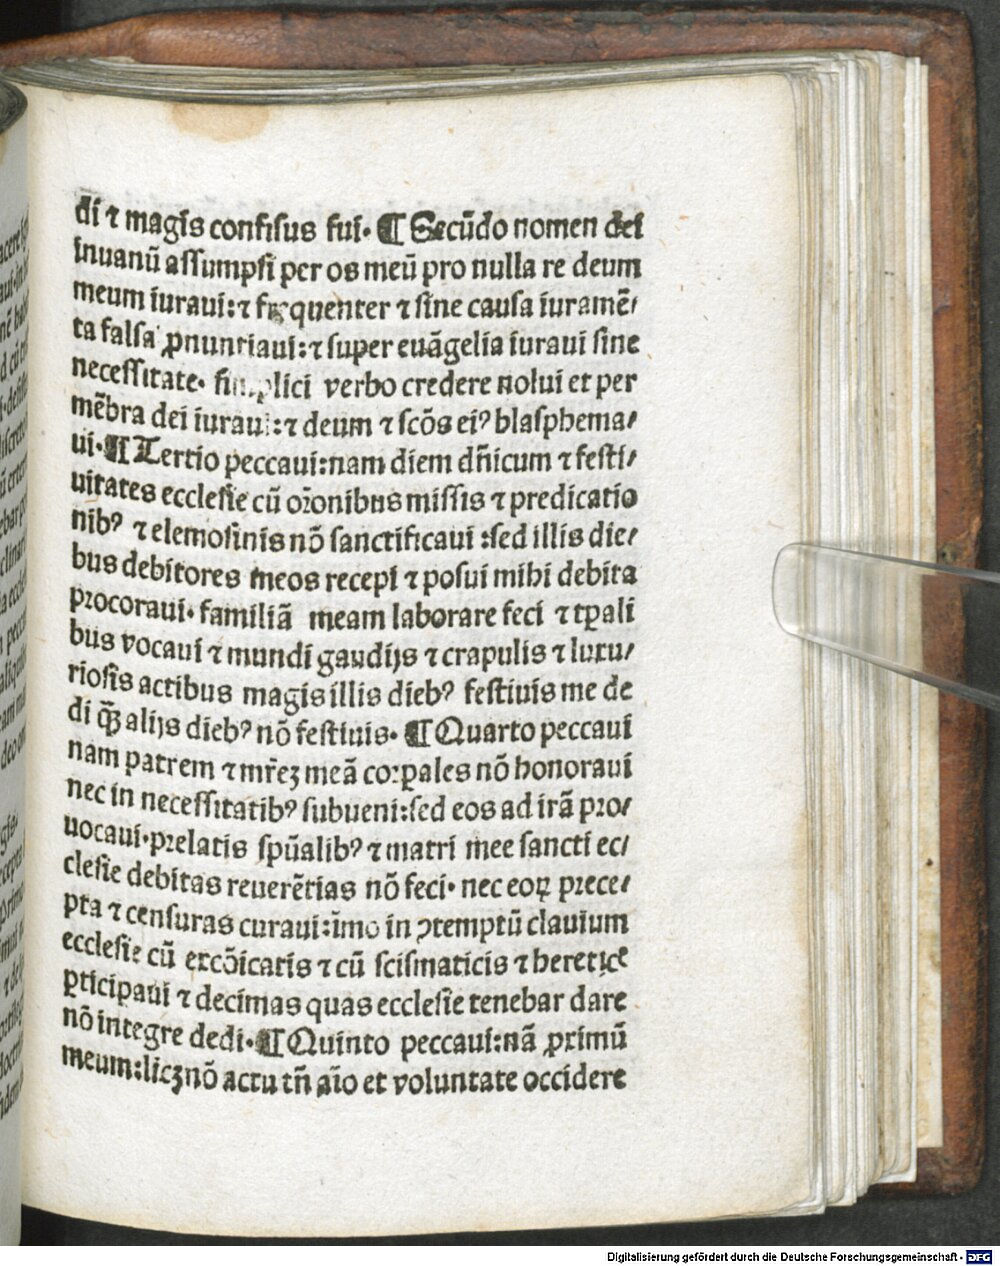 di ⁊ magis confisus fui. ¶ Secūdo nomen dei
inuanū assumpsi per os meū pro nulla re deum
meum iuraui: ⁊ frequenter ⁊ sine causa iuramē/
ta falsa ꝓnunciaui: ⁊ super euāgelia iuraui sine
necessitate. simplici verbo credere nolui et per
mēbra dei iuraui: ⁊ deum ⁊ scōs eiꝰ blasphema/
ui. ¶ Tertio peccaui: nam diem dn̄icum ⁊ festi/
uitates ecclesie cū or̄onibus missis ⁊ predicatio
nibꝰ ⁊ elemosinis nō sanctificaui : sed illis die/
bus debitores meos recepi ⁊ posui mihi debita
procoraui. familiā meam laborare feci ⁊ tp̱ali
bus vocaui ⁊ mundi gaudijs ⁊ crapulis ⁊ luxu/
riosis actibus magis illis diebꝰ festiuis me de
di qȝ̄ alijs diebꝰ nō festiuis. ¶ Quarto peccaui
nam patrem ⁊ mr̄eȝ meā corꝑales nō honoraui
nec in necessitatibꝰ subueni: sed eos ad irā pro/
uocaui. prelatis spūalibꝰ ⁊ matri mee sancti ec/
clesie debitas reuerētias nō feci. nec eoꝝ prece/
pta ⁊ censuras curaui: imo in ꝯtemptū clauium
ecclesie cū excōicatis ⁊ cū scismaticis ⁊ heretice
ꝑticipaui ⁊ decimas quas ecclesie tenebar dare
nō integre dedi. ¶ Quinto peccaui: nā ꝓximū
meum: licȝ nō actu tn̄ aīo et voluntate occidere
Digitalisierung gefördert durch die Deutsche Forschungsgemeinschaft - DFG